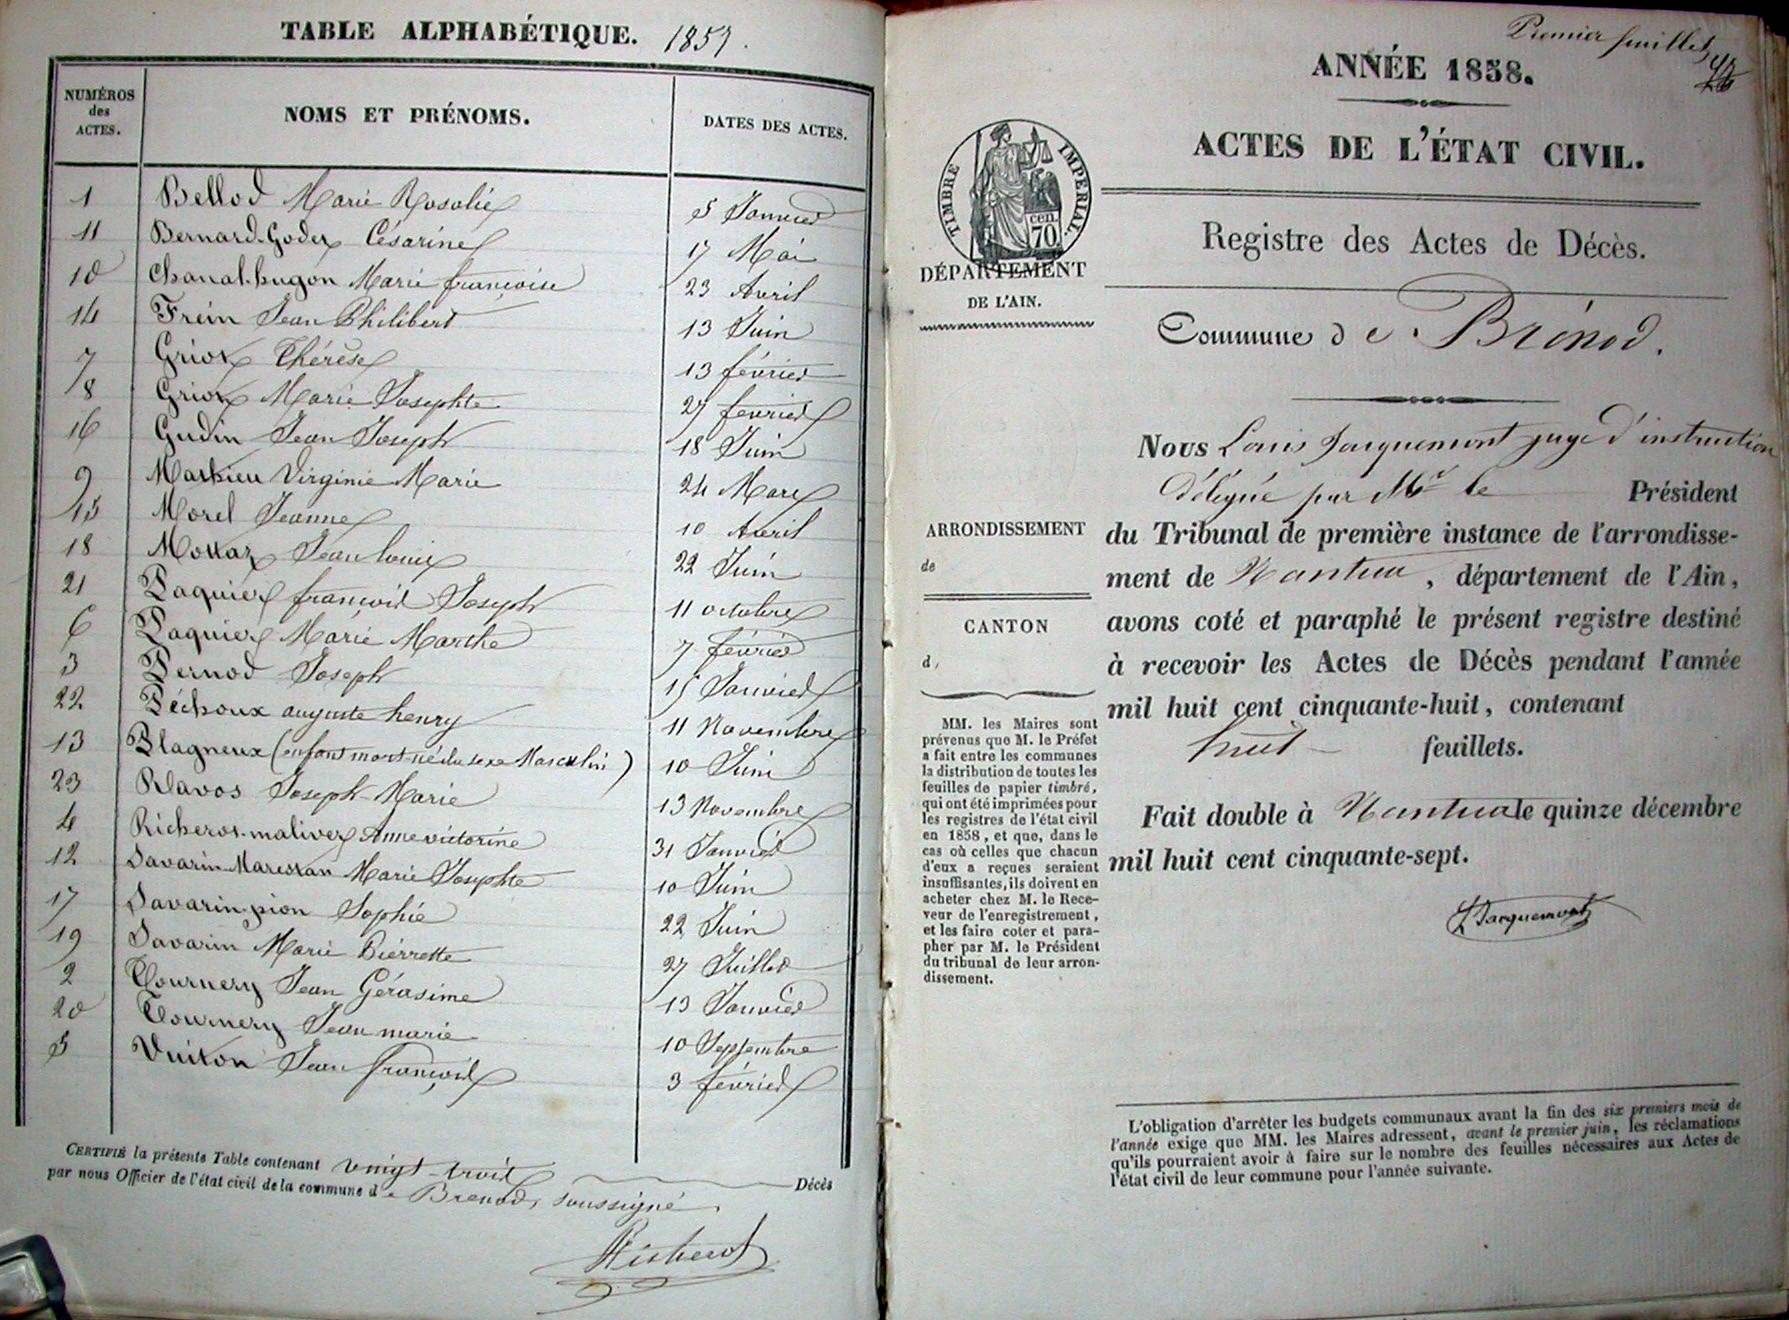 TABLE ALPHABÉTIQUE. 1857.
NUMÉROS des ACTES. NOMS ET PRÉNOMS. DATES DES ACTES.
1 Bellod Marie Rosalie 5 Janvier
11 Bernard-Goder Césarine 17 Mai
10 Chanal-hugon Marie françoise 23 Avril
14 Frein Jean Philibert 13 Juin
7 Griot Thérèse 13 février
8 Griot Marie Josephte 27 février
16 Gudin Jean Joseph 18 Juin
9 Mathieu Virginie Marie 24 Mars
15 Morel Jeanne 10 Avril
18 Mottaz Jean louis 22 Juin
21 Paquier françois Joseph 11 octobre
6 Paquier Marie Marthe 7 février
3 Pernod Joseph 15 Janvier
22 Péchoux auguste henry 11 Novembre
13 Blagneux (enfant mort-né du sexe Masculin) 10 Juin
23 Ravos Joseph-Marie 13 Novembre
4 Richerot-malivez Anne victorine 31 Janvier
12 Savarin-Marestan Marie Josephte 10 Juin
17 Savarin-pion Sophie 22 Juin
19 Savarin Marie Pierrette 27 Juillet
2 Tournery Jean Gérasime 13 Janvier
20 Tournery Jean marie 10 Septembre
5 Vuiton Jean françois 3 février
CERTIFIÉ la présente Table contenant vingt-trois Décès
par nous Officier de l'état civil de la commune de Brenod, soussigné.
Richerot
Premier feuillet
ANNÉE 1858.
ACTES DE L'ÉTAT CIVIL.
TIMBRE IMPÉRIAL.
cen. 70
DÉPARTEMENT
DE L'AIN.
Registre des Actes de Décès.
Commune de Brénod.
Nous Louis Jacquemont juge d'instruction
délégué par Mr le Président
du Tribunal de première instance de l'arrondisse-
ment de Nantua, département de l'Ain,
avons coté et paraphé le présent registre destiné
à recevoir les Actes de Décès pendant l'année
mil huit cent cinquante-huit, contenant
huit feuillets.
Fait double à Nantua le quinze décembre
mil huit cent cinquante-sept.
L Jacquemont
ARRONDISSEMENT
de
CANTON
d
MM. les Maires sont
prévenus que M. le Préfet
a fait entre les communes
la distribution de toutes les
feuilles de papier timbré,
qui ont été imprimées pour
les registres de l'état civil
en 1858, et que, dans le
cas où celles que chacun
d'eux a reçues seraient
insuffisantes, ils doivent en
acheter chez M. le Rece-
veur de l'enregistrement,
et les faire coter et para-
pher par M. le Président
du tribunal de leur arron-
dissement.
L'obligation d'arrêter les budgets communaux avant la fin des six premiers mois de
l'année exige que MM. les Maires adressent, avant le premier juin, les réclamations
qu'ils pourraient avoir à faire sur le nombre des feuilles nécessaires aux Actes de
l'état civil de leur commune pour l'année suivante.